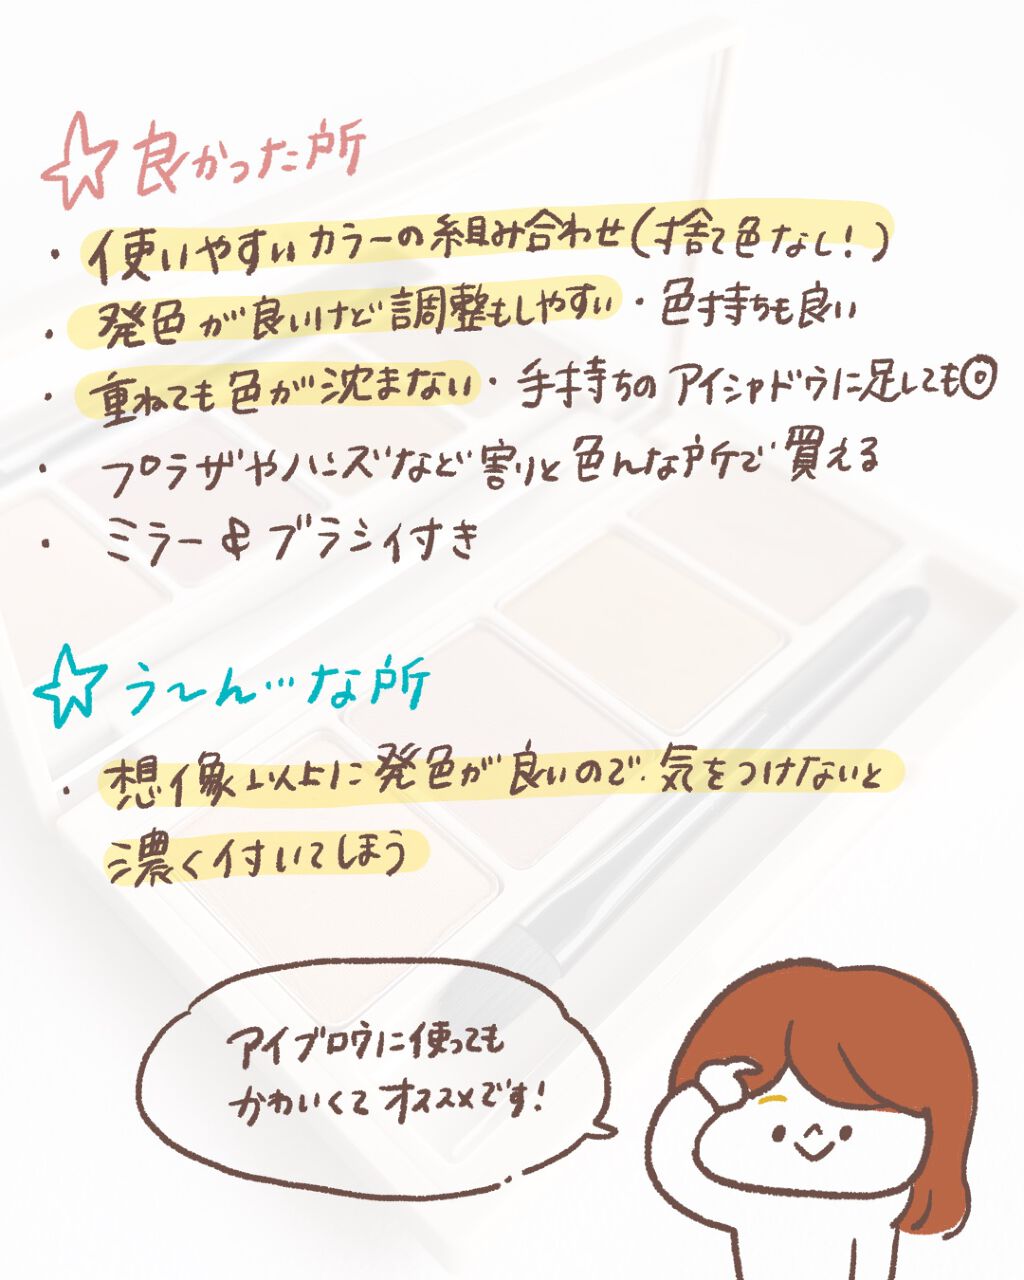 ☆良かった所
・使いやすいカラーの組み合わせ(捨て色なし!)
・発色が良いけど調整もしやすい・色持ちも良い
・重ねても色が沈まない・手持ちのアイシャドウに足しても◎
・プラザやハンズなど割りと色んな所で買える
・ミラー&ブラシ付き
☆う〜ん…な所
・想像以上に発色が良いので気をつけないと
濃く付いてしまう
アイブロウに使っても
かわいくてオススメです!